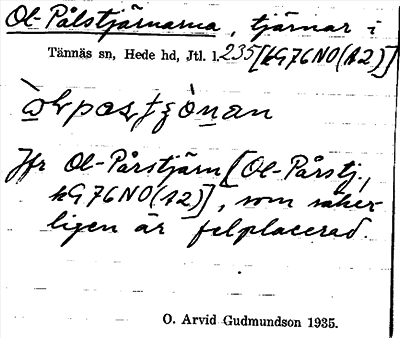 Ol-Pålstjärnarna, tjärnar i
Tännäs sn, Hede hd, Jtl. l. 235 [kG76NO(A2)]
Jfr Ol-Pårstjärn [Ol-Pårstj.,
kG76NO(A2)], som säker-
ligen är felplacerad.
O. Arvid Gudmundson 1935.